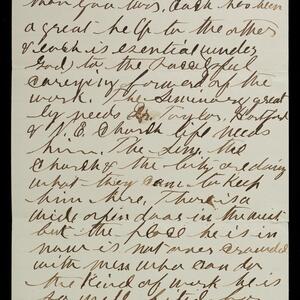 than you two. Each has been
a great help to the other
& each is esential under
God to the successful
carrying forward of the
work. The Seminary great
ly needs Dr. Taylor, Hartford
& J. E. Church life needs
him. The Sem. the
Church & the City are doing
what they can to keep
him here. There is a
wide open door in the west
but the place he is in
now is not over crowded
with men who can do
the kind of work he is
so well